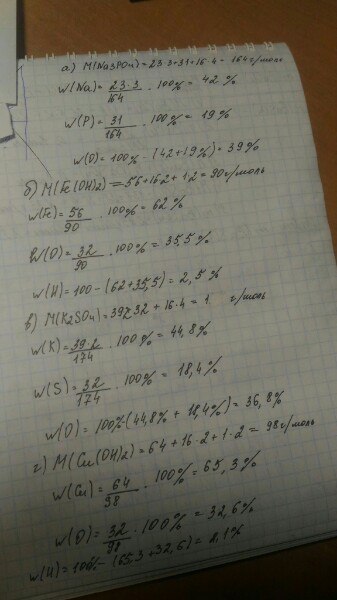 а) M(Na3PO4) = 23·3+31+16·4 = 164 г/моль
W(Na) = 23·3/164 · 100% = 42%
W(P) = 31/164 · 100% = 19%
W(O) = 100% - (42+19%) = 39%
б) M(Fe(OH)2) = 56+16·2+1·2 = 90 г/моль
W(Fe) = 56/90 · 100% = 62%
W(O) = 32/90 · 100% = 35,5%
W(H) = 100 - (62+35,5) = 2,5%
в) M(K2SO4) = 39·2 32 + 16·4 = 1 г/моль
W(K) = 39·2/174 · 100% = 44,8%
W(S) = 32/174 · 100% = 18,4%
W(O) = 100% - (44,8% + 18,4%) = 36,8%
г) M(Cu(OH)2) = 64+16·2+1·2 = 98 г/моль
W(Cu) = 64/98 · 100% = 65,3%
W(O) = 32/98 · 100% = 32,6%
W(H) = 100% - (65,3+32,6) = 2,1%